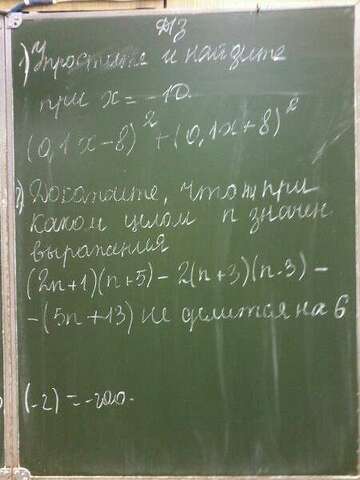 ДЗ
1) Упростите и найдите
при x = -10.
(0,1x-8)² + (0,1x+8)²
2) Докажите, что ни при
каком целом n значен
выражения
(2n+1)(n+5) - 2(n+3)(n-3) -
-(5n+13) не делится на 6
(-2) = -200.